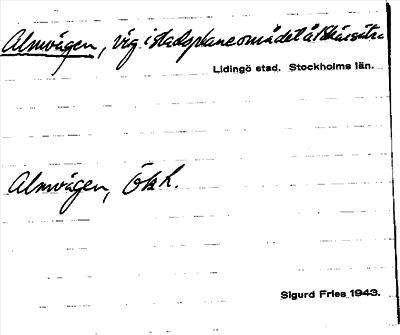 Almvägen, väg i stadsplaneområdet å Skärsätra
Lidingö stad. Stockholms län.
Almvägen, Ökk.
Sigurd Fries 1943.